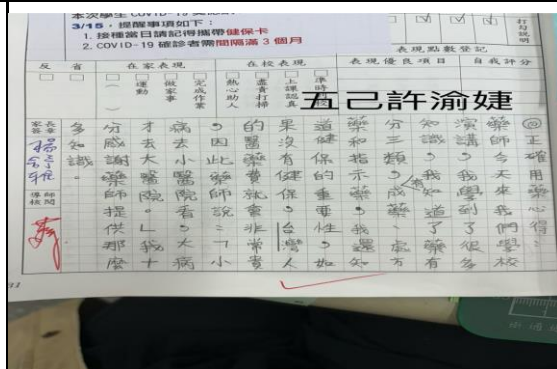 3/15，提醒事項如下：
1. 接種當日請記得攜帶健保卡
2. COVID-19 確診者需間隔滿 3 個月
打勾說明
表現點數登記
反省
在家表現
在校表現
表現優良項目
自我評分
運動
做家事
完成作業
熱心助人
盡責打掃
上課認真
五己許渝婕
◎正確用藥心得
藥師今天來我們學校
演講，我學到了很多
知識，我知道了藥有
分三類，成藥、處方
藥和指示藥，我還知
道健保的重要性，如
果沒有健保，台灣人
的醫藥費就會非常貴
，因此藥師說：「小
病去小醫院看，大病
才去大醫院。」我十
分感謝藥師提供那麼
多知識。
家長簽章
導師核閱